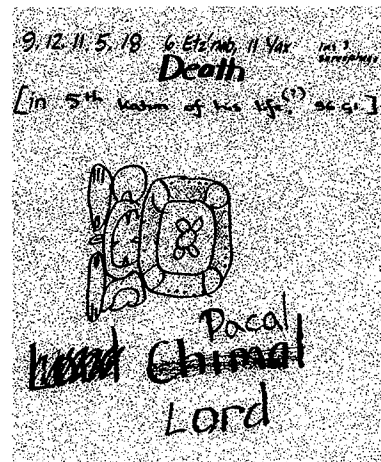 9. 12. 11. 5. 18 6 Etz'nab, 11 Yax
Death
[in 5th katun of his life,(?)
Pacal
Chimal
Lord